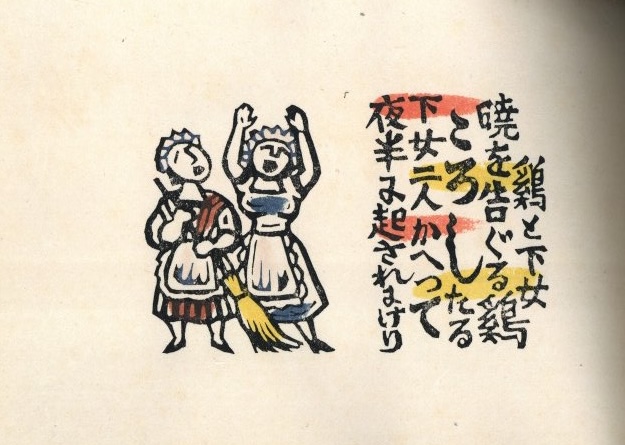 鶏と下女
暁を告ぐる鶏
ころしたる
下女二人かへつて
夜半に起されけり